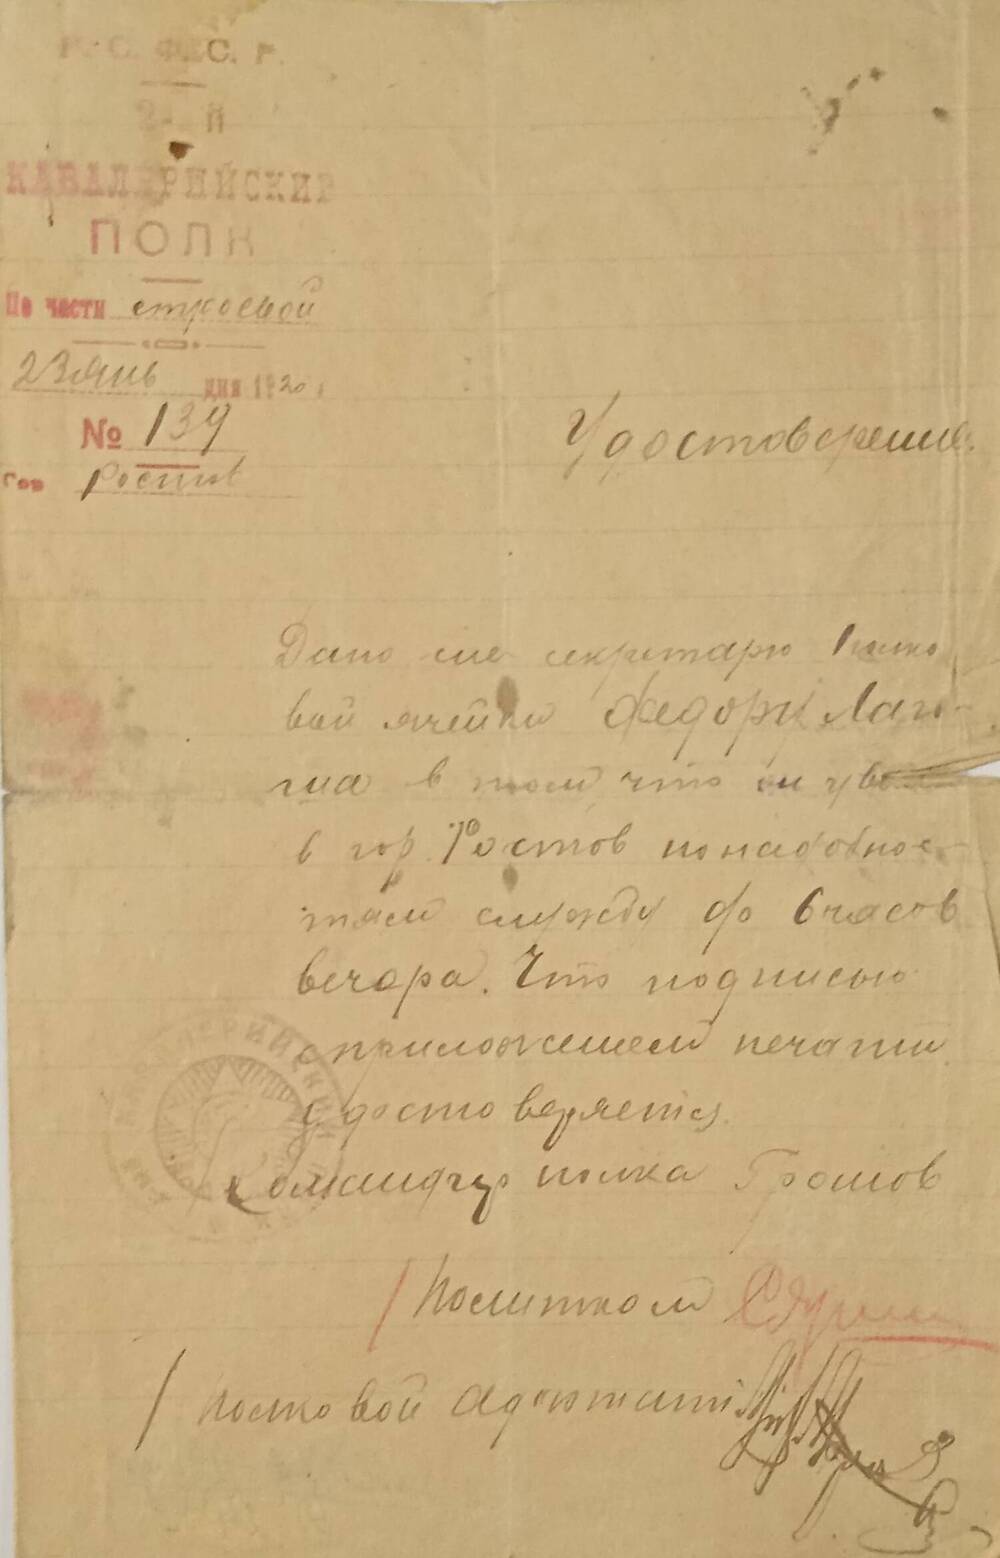 Р. С. Ф. С. Р.
2-й
КАВАЛЕРИЙСКИЙ
ПОЛК
По части строевой
23 янь дня 1920 г.
№ 139
гор Ростов
Удостоверение.
Дано сие секретарю 1 полко
вой ячейки Федору
в том, что он
в гор. Ростов по надобнос-
тям службу до 6 часов
вечера. Что подписью
с приложением печати
удостоверяется.
Командир полка Громов
/ Политком
/ Полковой адъютант
КАВАЛЕРИЙСКИЙ